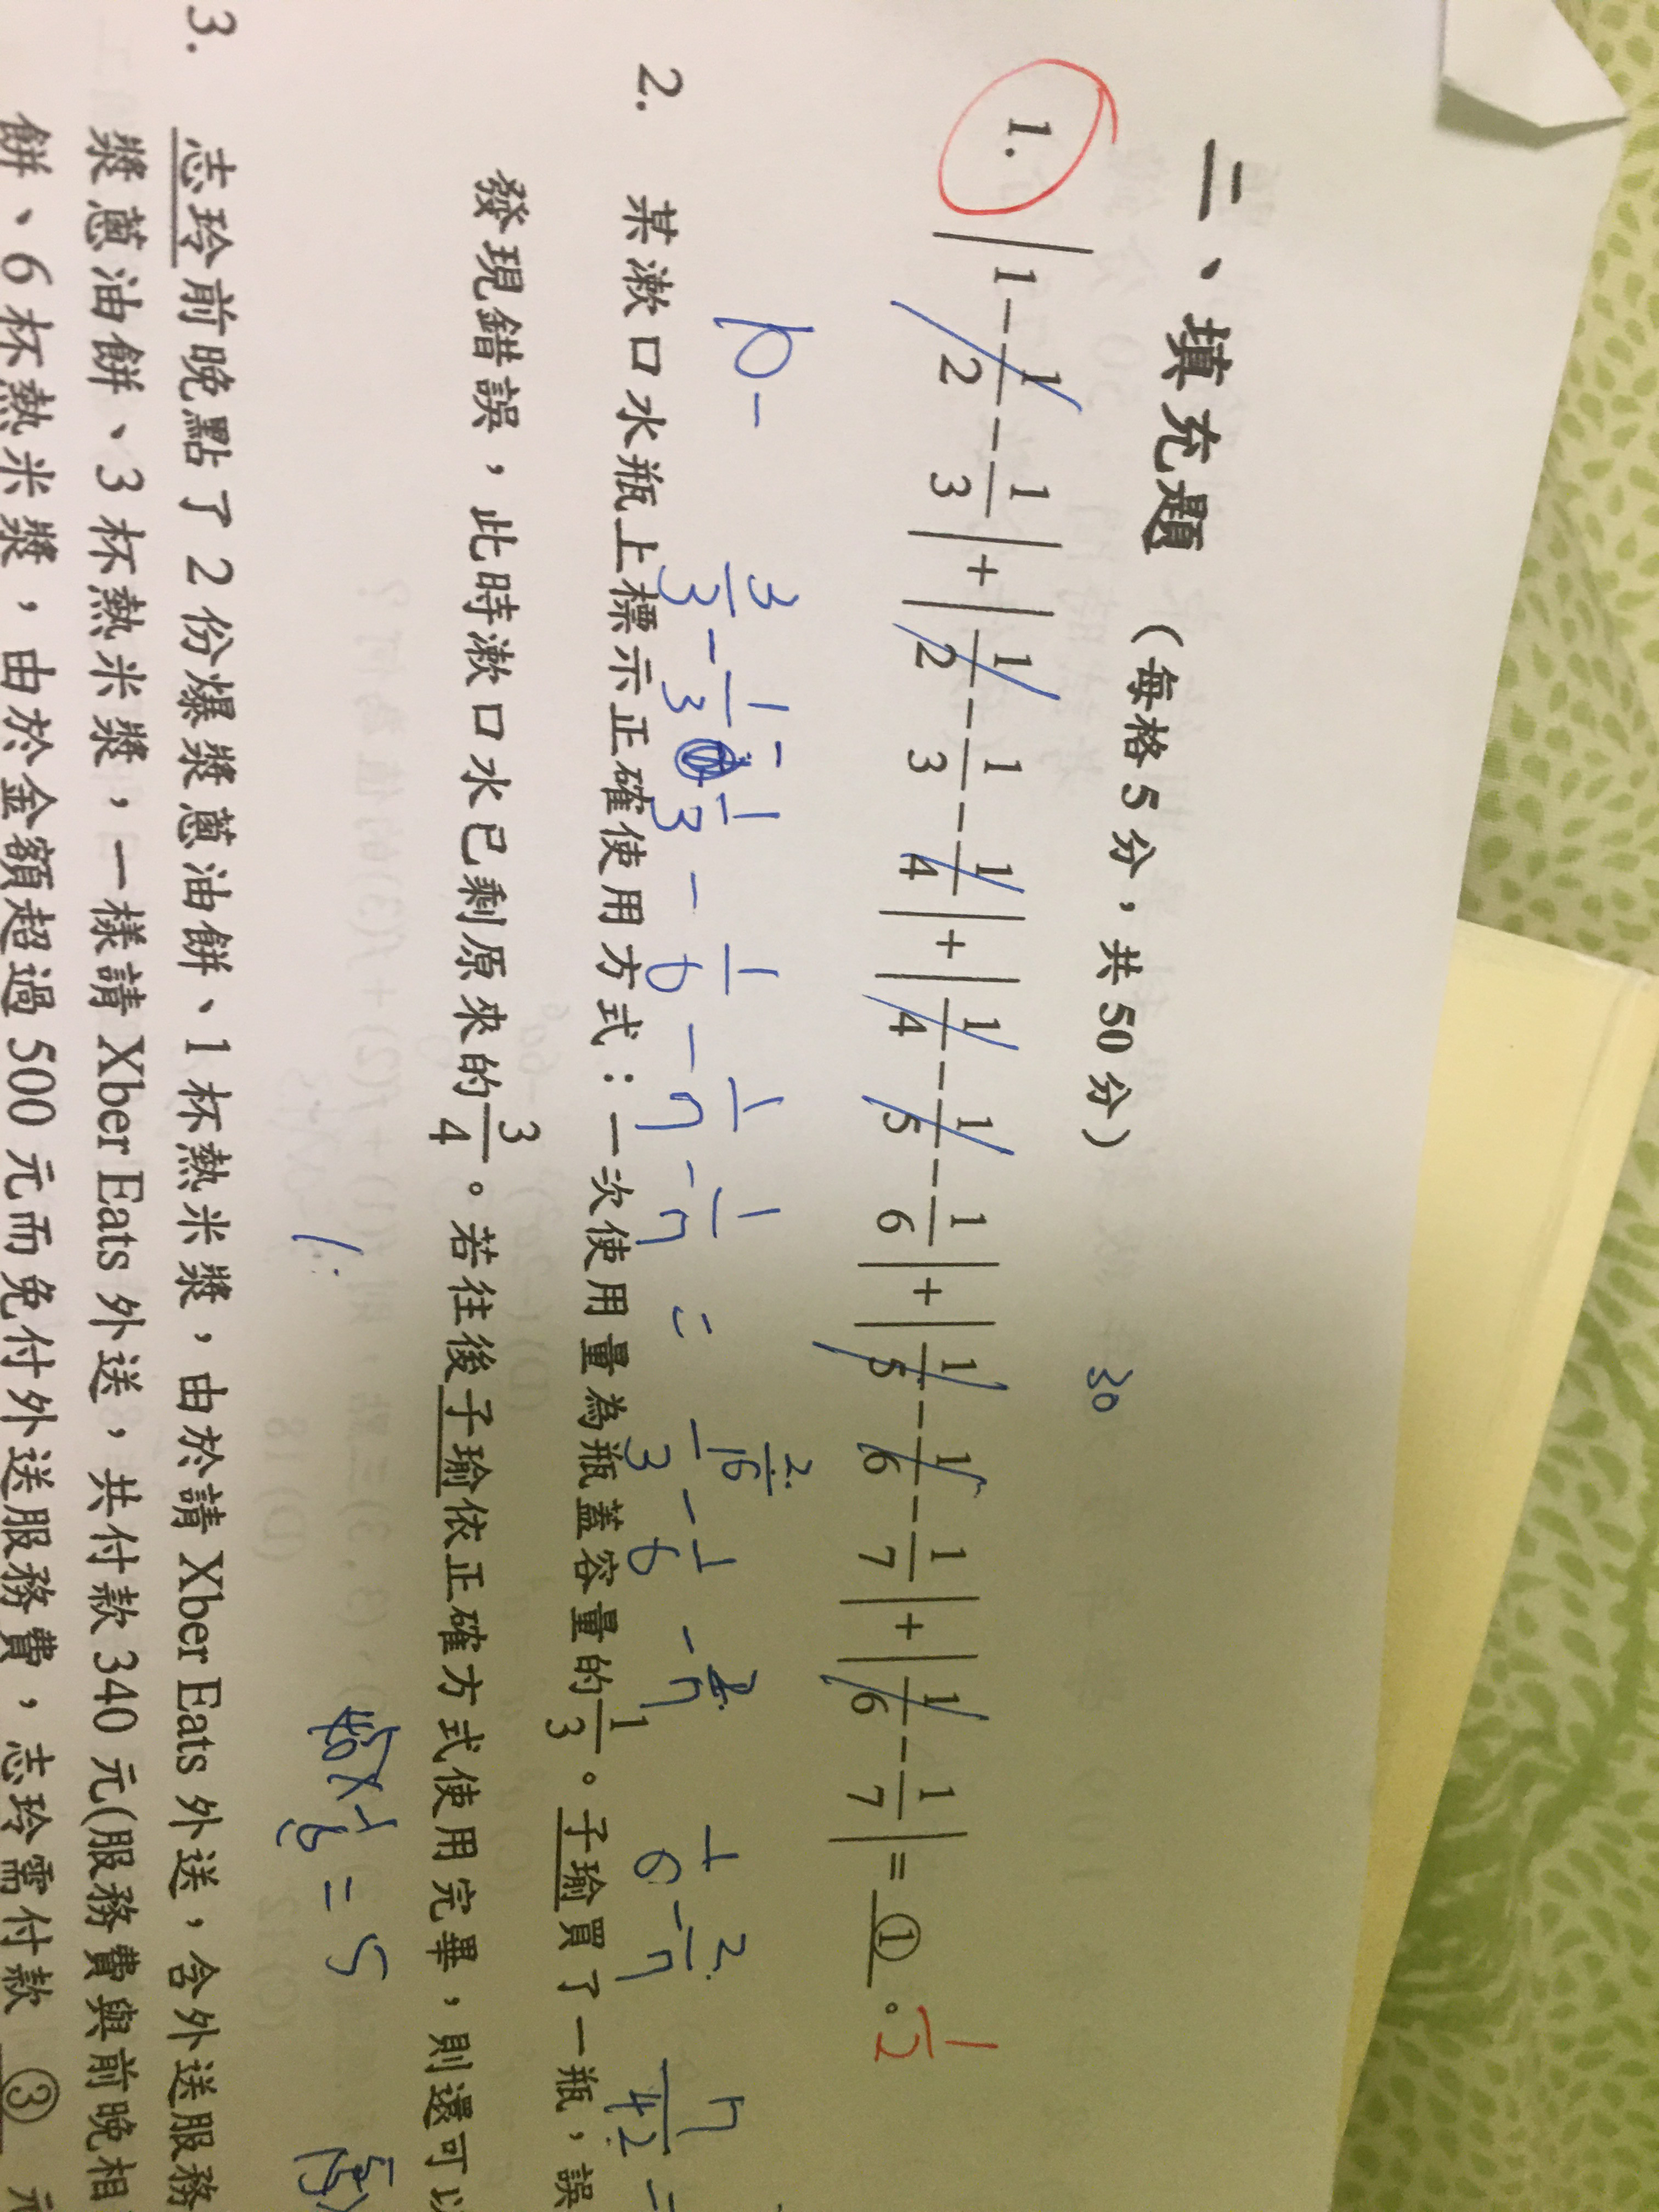 二、填充題（每格 5 分，共 50 分）
30
1. |1-1/2-1/3|+|1/2-1/3-1/4|+|1/4-1/5-1/6|+|1/5-1/6-1/7|+|1/6-1/7|= ① 。 1/2
3/3 - 1/3 - 1/3 - 1/6 - 1/7 - 1/7 =
2. 某漱口水瓶上標示正確使用方式：一次使用量為瓶蓋容量的 1/3 。子瑜買了一瓶，誤
發現錯誤，此時漱口水已剩原來的 3/4 。若往後子瑜依正確方式使用完畢，則還可以
= 5
3. 志玲前晚點了 2 份爆漿蔥油餅、1 杯熱米漿，由於請 Xber Eats 外送，含外送服務
漿蔥油餅、3 杯熱米漿，一樣請 Xber Eats 外送，共付款 340 元(服務費與前晚相
餅、6 杯熱米漿，由於金額超過 500 元而免付外送服務費，志玲需付款 ③ 元